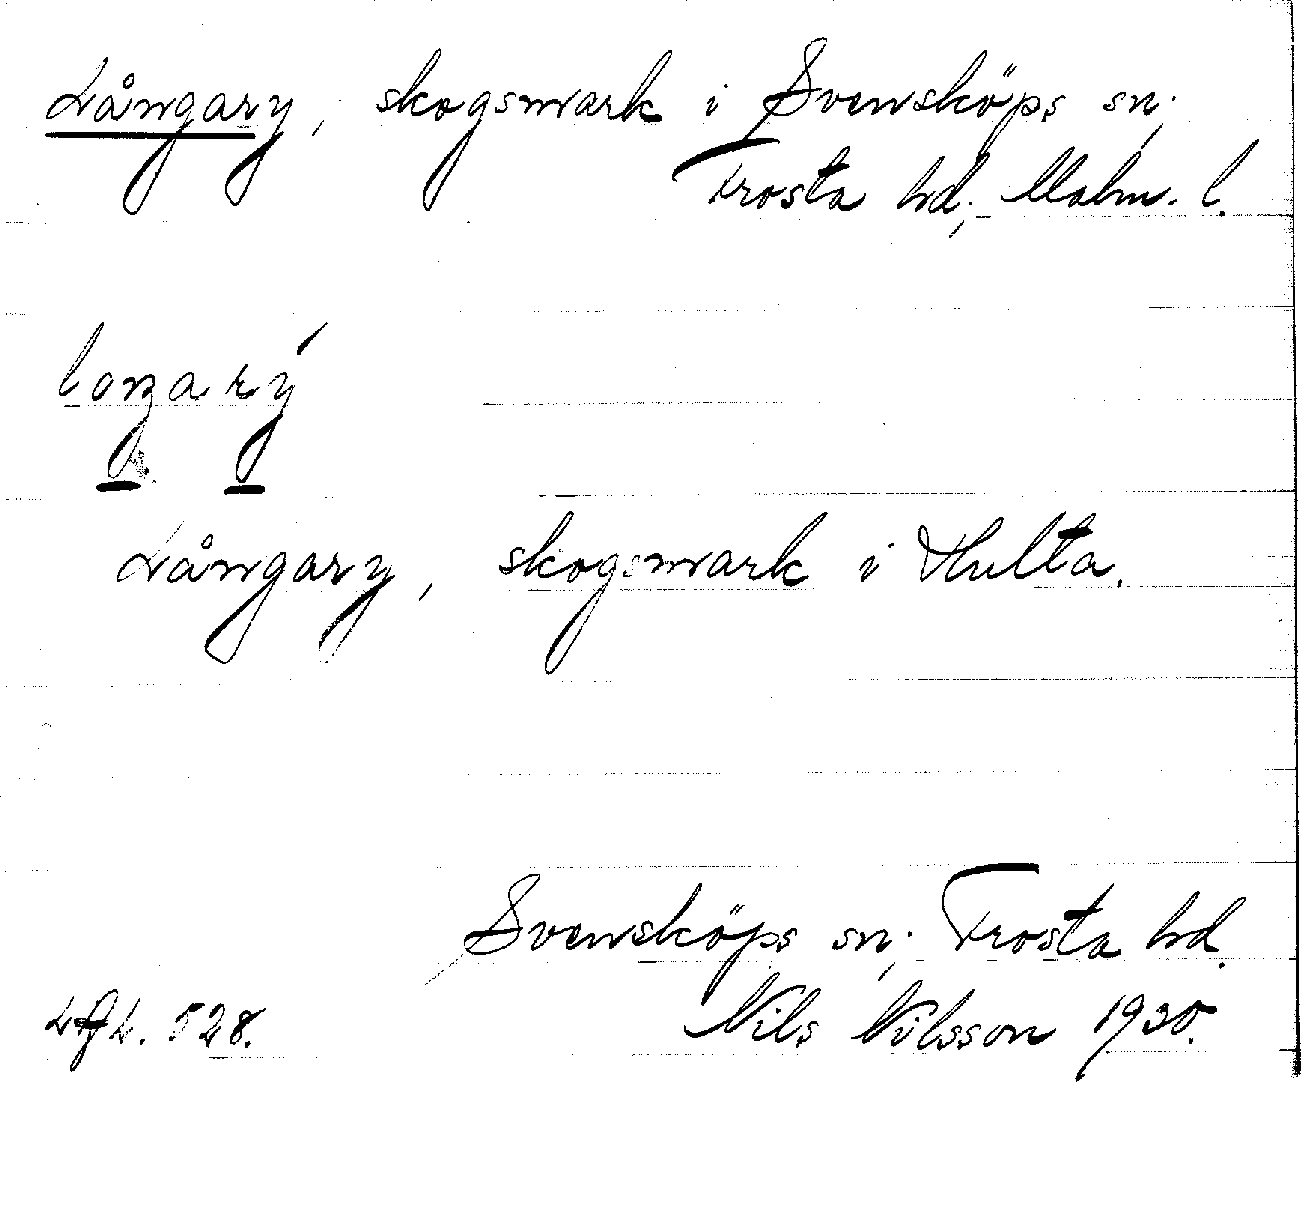 Långary, skogsmark i Svensköps sn;
Frosta hd; Malm. l.
loŋarý
Långary, skogsmark i Hulta.
Svensköps sn; Frosta hd.
528. Nils Nilsson 1930.